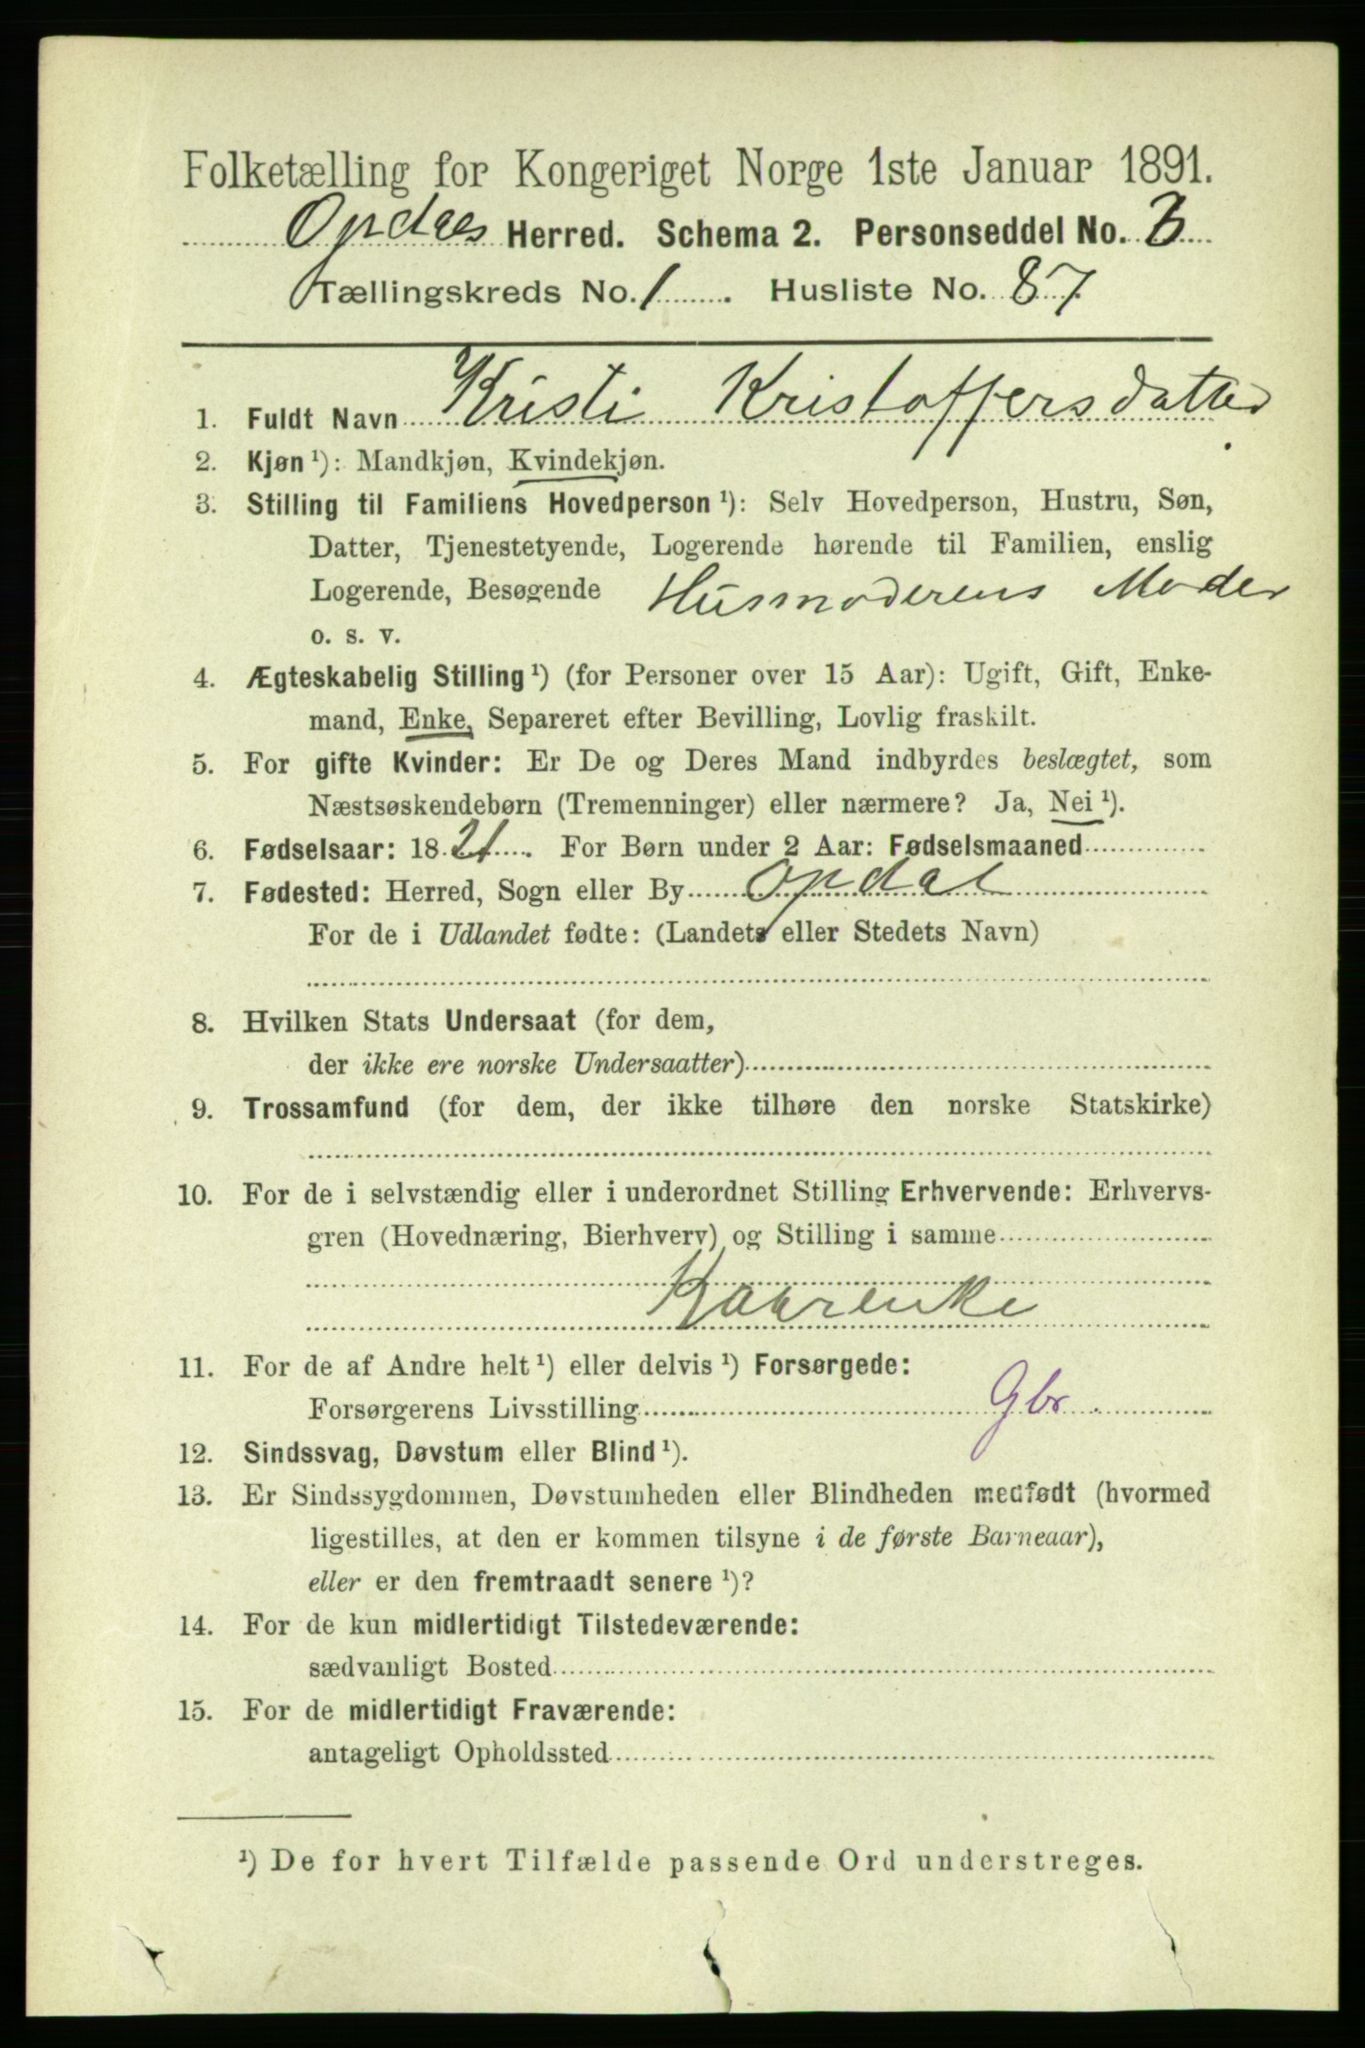 Folketælling for Kongeriget Norge 1ste Januar 1891.
Opdals Herred. Schema 2. Personseddel No. 3
Tællingskreds No. 1. Husliste No. 87.
1. Fuldt Navn Kristi Kristoffersdatter
2. Kjøn ¹): Mandkjøn, Kvindekjøn.
3. Stilling til Familiens Hovedperson ¹): Selv Hovedperson, Hustru, Søn,
Datter, Tjenestetyende, Logerende hørende til Familien, enslig
Logerende, Besøgende Husmoderens Moder
o. s. v.
4. Ægteskabelig Stilling ¹) (for Personer over 15 Aar): Ugift, Gift, Enke-
mand, Enke, Separeret efter Bevilling, Lovlig fraskilt.
5. For gifte Kvinder: Er De og Deres Mand indbyrdes beslægtet, som
Næstsøskendebørn (Tremenninger) eller nærmere? Ja, Nei ¹).
6. Fødselsaar: 1821. For Børn under 2 Aar: Fødselsmaaned
7. Fødested: Herred, Sogn eller By Opdal
For de i Udlandet fødte: (Landets eller Stedets Navn)
8. Hvilken Stats Undersaat (for dem,
der ikke ere norske Undersaatter)
9. Trossamfund (for dem, der ikke tilhøre den norske Statskirke)
10. For de i selvstændig eller i underordnet Stilling Erhvervende: Erhvervs-
gren (Hovednæring, Bierhverv) og Stilling i samme
Kaarenke
11. For de af Andre helt ¹) eller delvis ¹) Forsørgede:
Forsørgerens Livsstilling Gbr.
12. Sindssvag, Døvstum eller Blind ¹).
13. Er Sindssygdommen, Døvstumheden eller Blindheden medfødt (hvormed
ligestilles, at den er kommen tilsyne i de første Barneaar),
eller er den fremtraadt senere ¹)?
14. For de kun midlertidigt Tilstedeværende:
sædvanligt Bosted
15. For de midlertidigt Fraværende:
antageligt Opholdssted
¹) De for hvert Tilfælde passende Ord understreges.